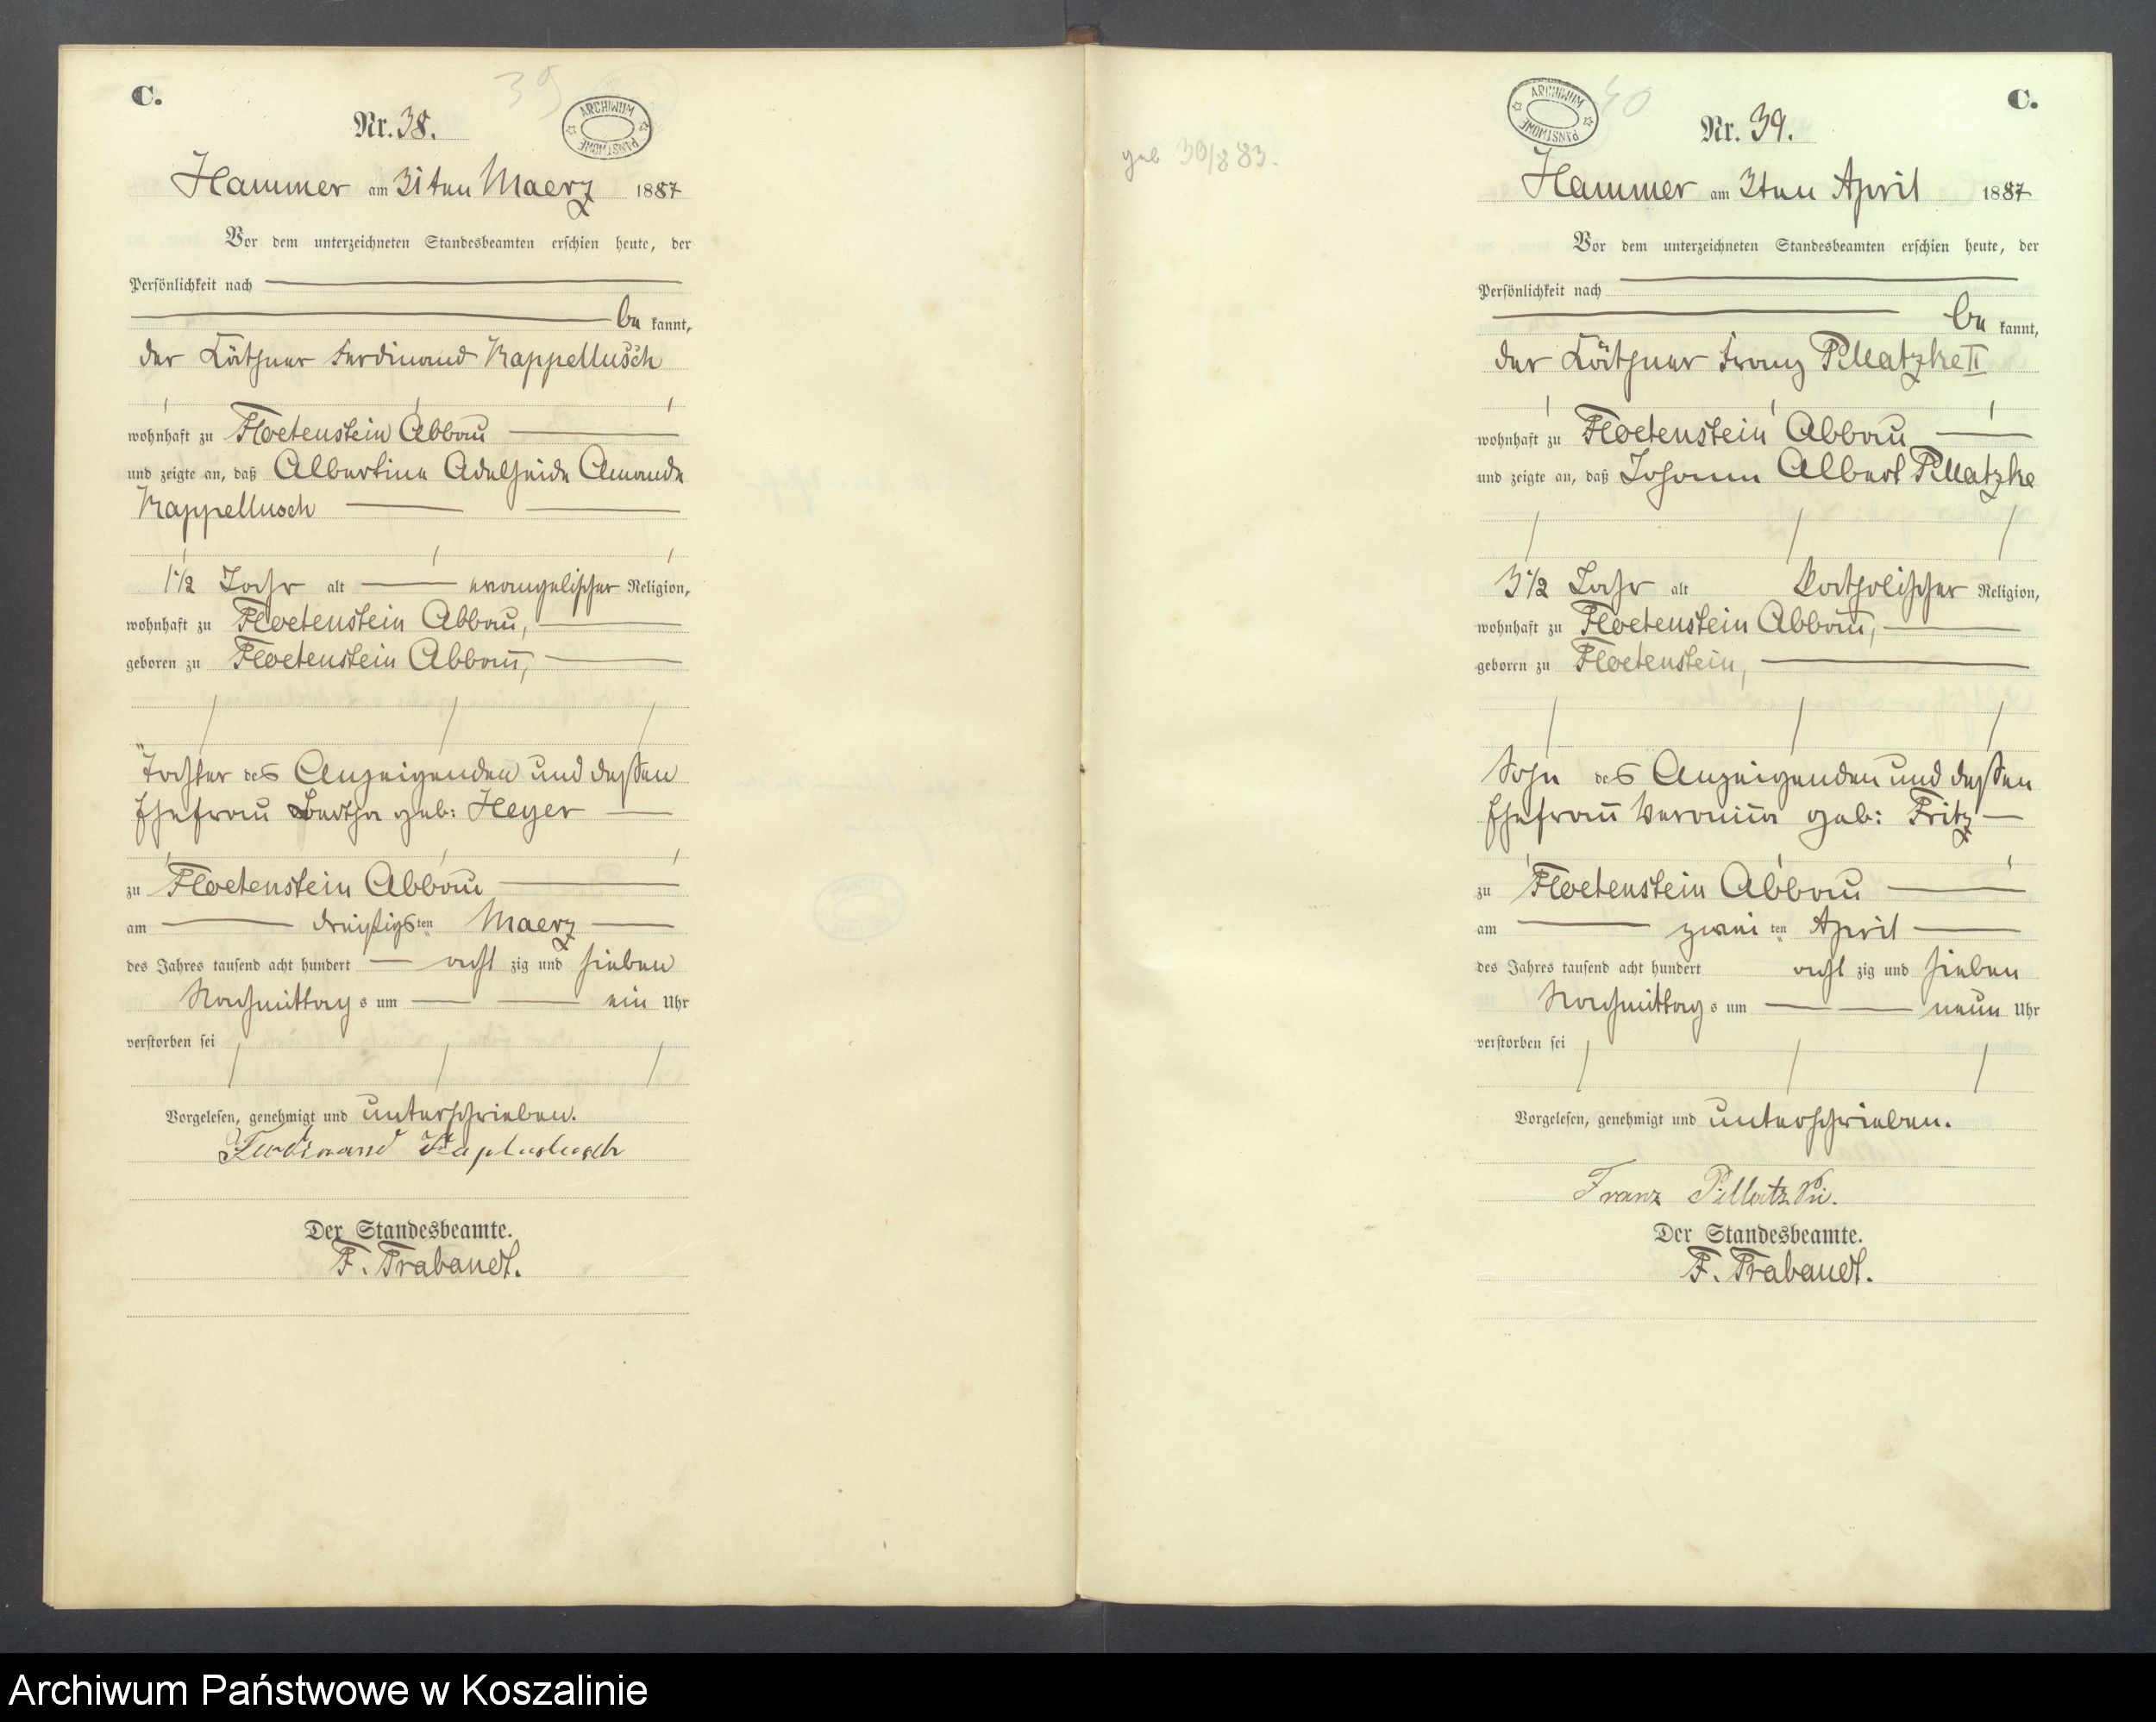 C.
39
Nr. 38.
ARCHIWUM PAŃSTWOWE
Hammer am 31ten Maerz 1887
Vor dem unterzeichneten Standesbeamten erschien heute, der
Persönlichkeit nach
be kannt,
der Käthner Ferdinand Kappellusch
wohnhaft zu Floetenstein Abbau
und zeigte an, daß Albertine Adelheide Amande
Kappellusch
1 1/2 Jahr alt evangelischer Religion,
wohnhaft zu Floetenstein Abbau,
geboren zu Floetenstein Abbau,
Tochter des Anzeigenden und dessen
Ehefrau Bertha geb: Heyer
zu Floetenstein Abbau
am dreißigsten Maerz
des Jahres tausend acht hundert acht zig und sieben
Nachmittags um ein Uhr
verstorben sei
Vorgelesen, genehmigt und unterschrieben.
Ferdinand
Der Standesbeamte.
F. Trabandt.
geb 30/8 83.
ARCHIWUM PAŃSTWOWE
40
C.
Nr. 39.
Hammer am 3ten April 1887
Vor dem unterzeichneten Standesbeamten erschien heute, der
Persönlichkeit nach
be kannt,
der Käthner Franz Pillatzke II
wohnhaft zu Floetenstein Abbau
und zeigte an, daß Johann Albert Pillatzke
3 1/2 Jahr alt katholischer Religion,
wohnhaft zu Floetenstein Abbau,
geboren zu Floetenstein,
Sohn des Anzeigenden und dessen
Ehefrau Veronika geb: Fritz
zu Floetenstein Abbau
am zweiten April
des Jahres tausend acht hundert acht zig und sieben
Nachmittags um neun Uhr
verstorben sei
Vorgelesen, genehmigt und unterschrieben.
Franz Pillatzki.
Der Standesbeamte.
F. Trabandt.
Archiwum Państwowe w Koszalinie